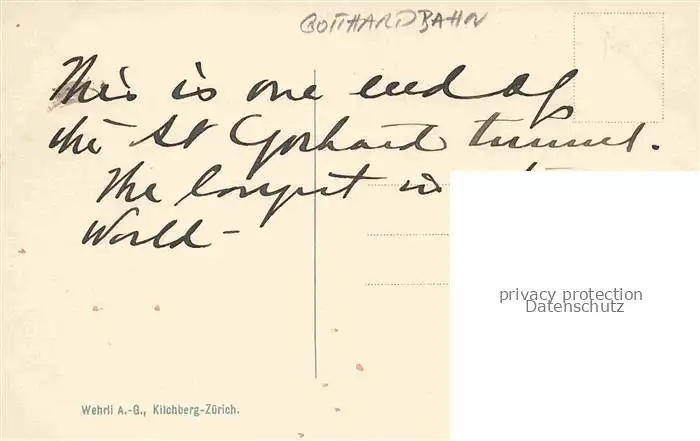 GOTTHARDBAHN
This is one end of
the St Gothard tunnel.
The longest in
World -
privacy protection
Datenschutz
Wehrli A.-G., Kilchberg-Zürich.